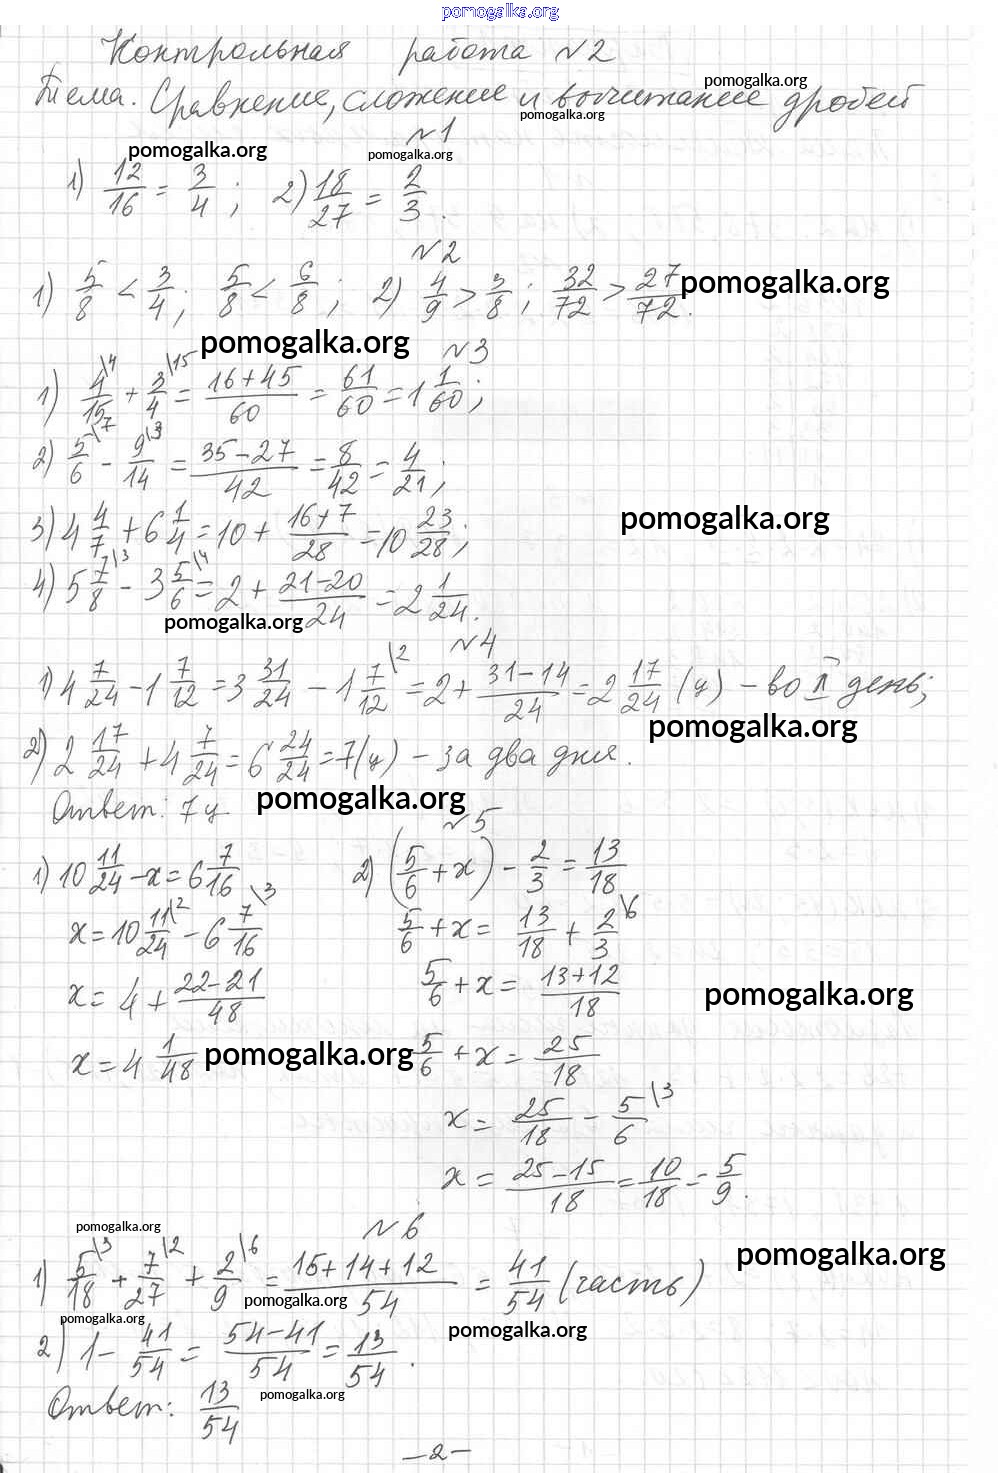 pomogalka.org
Контрольная работа №2
pomogalka.org
Тема. Сравнение, сложение и вычитание дробей
pomogalka.org
№1
pomogalka.org pomogalka.org
1) 12/16 = 3/4 ; 2) 18/27 = 2/3.
№2
1) 5/8 < 3/4 ; 5/8 < 6/8 ; 2) 4/9 > 3/8 ; 32/72 > 27/72.
pomogalka.org
pomogalka.org
№3
1) 4/15\4 + 3/4\15 = (16+45)/60 = 61/60 = 1 1/60 ;
2) 5/6\7 - 9/14\3 = (35-27)/42 = 8/42 = 4/21 ;
pomogalka.org
3) 4 4/7 + 6 1/4 = 10 + (16+7)/28 = 10 23/28 ;
4) 5 7/8\3 - 3 5/6\4 = 2 + (21-20)/24 = 2 1/24.
pomogalka.org
№4
1) 4 7/24 - 1 7/12 = 3 31/24 - 1 7/12\2 = 2 + (31-14)/24 = 2 17/24 (ч) - во II день;
pomogalka.org
2) 2 17/24 + 4 7/24 = 6 24/24 = 7 (ч) - за два дня.
Ответ: 7 ч
pomogalka.org
№5
1) 10 11/24 - x = 6 7/16
x = 10 11/24\2 - 6 7/16\3
x = 4 + (22-21)/48
x = 4 1/48
pomogalka.org
2) (5/6 + x) - 2/3 = 13/18
5/6 + x = 13/18 + 2/3\6
5/6 + x = (13+12)/18
pomogalka.org
5/6 + x = 25/18
x = 25/18 - 5/6\3
x = (25-15)/18 = 10/18 = 5/9.
pomogalka.org
№6
pomogalka.org
1) 5/18\3 + 7/27\2 + 2/9\6 = (15+14+12)/54 = 41/54 (часть)
pomogalka.org
pomogalka.org
pomogalka.org
2) 1 - 41/54 = (54-41)/54 = 13/54.
Ответ: 13/54
pomogalka.org
-2-